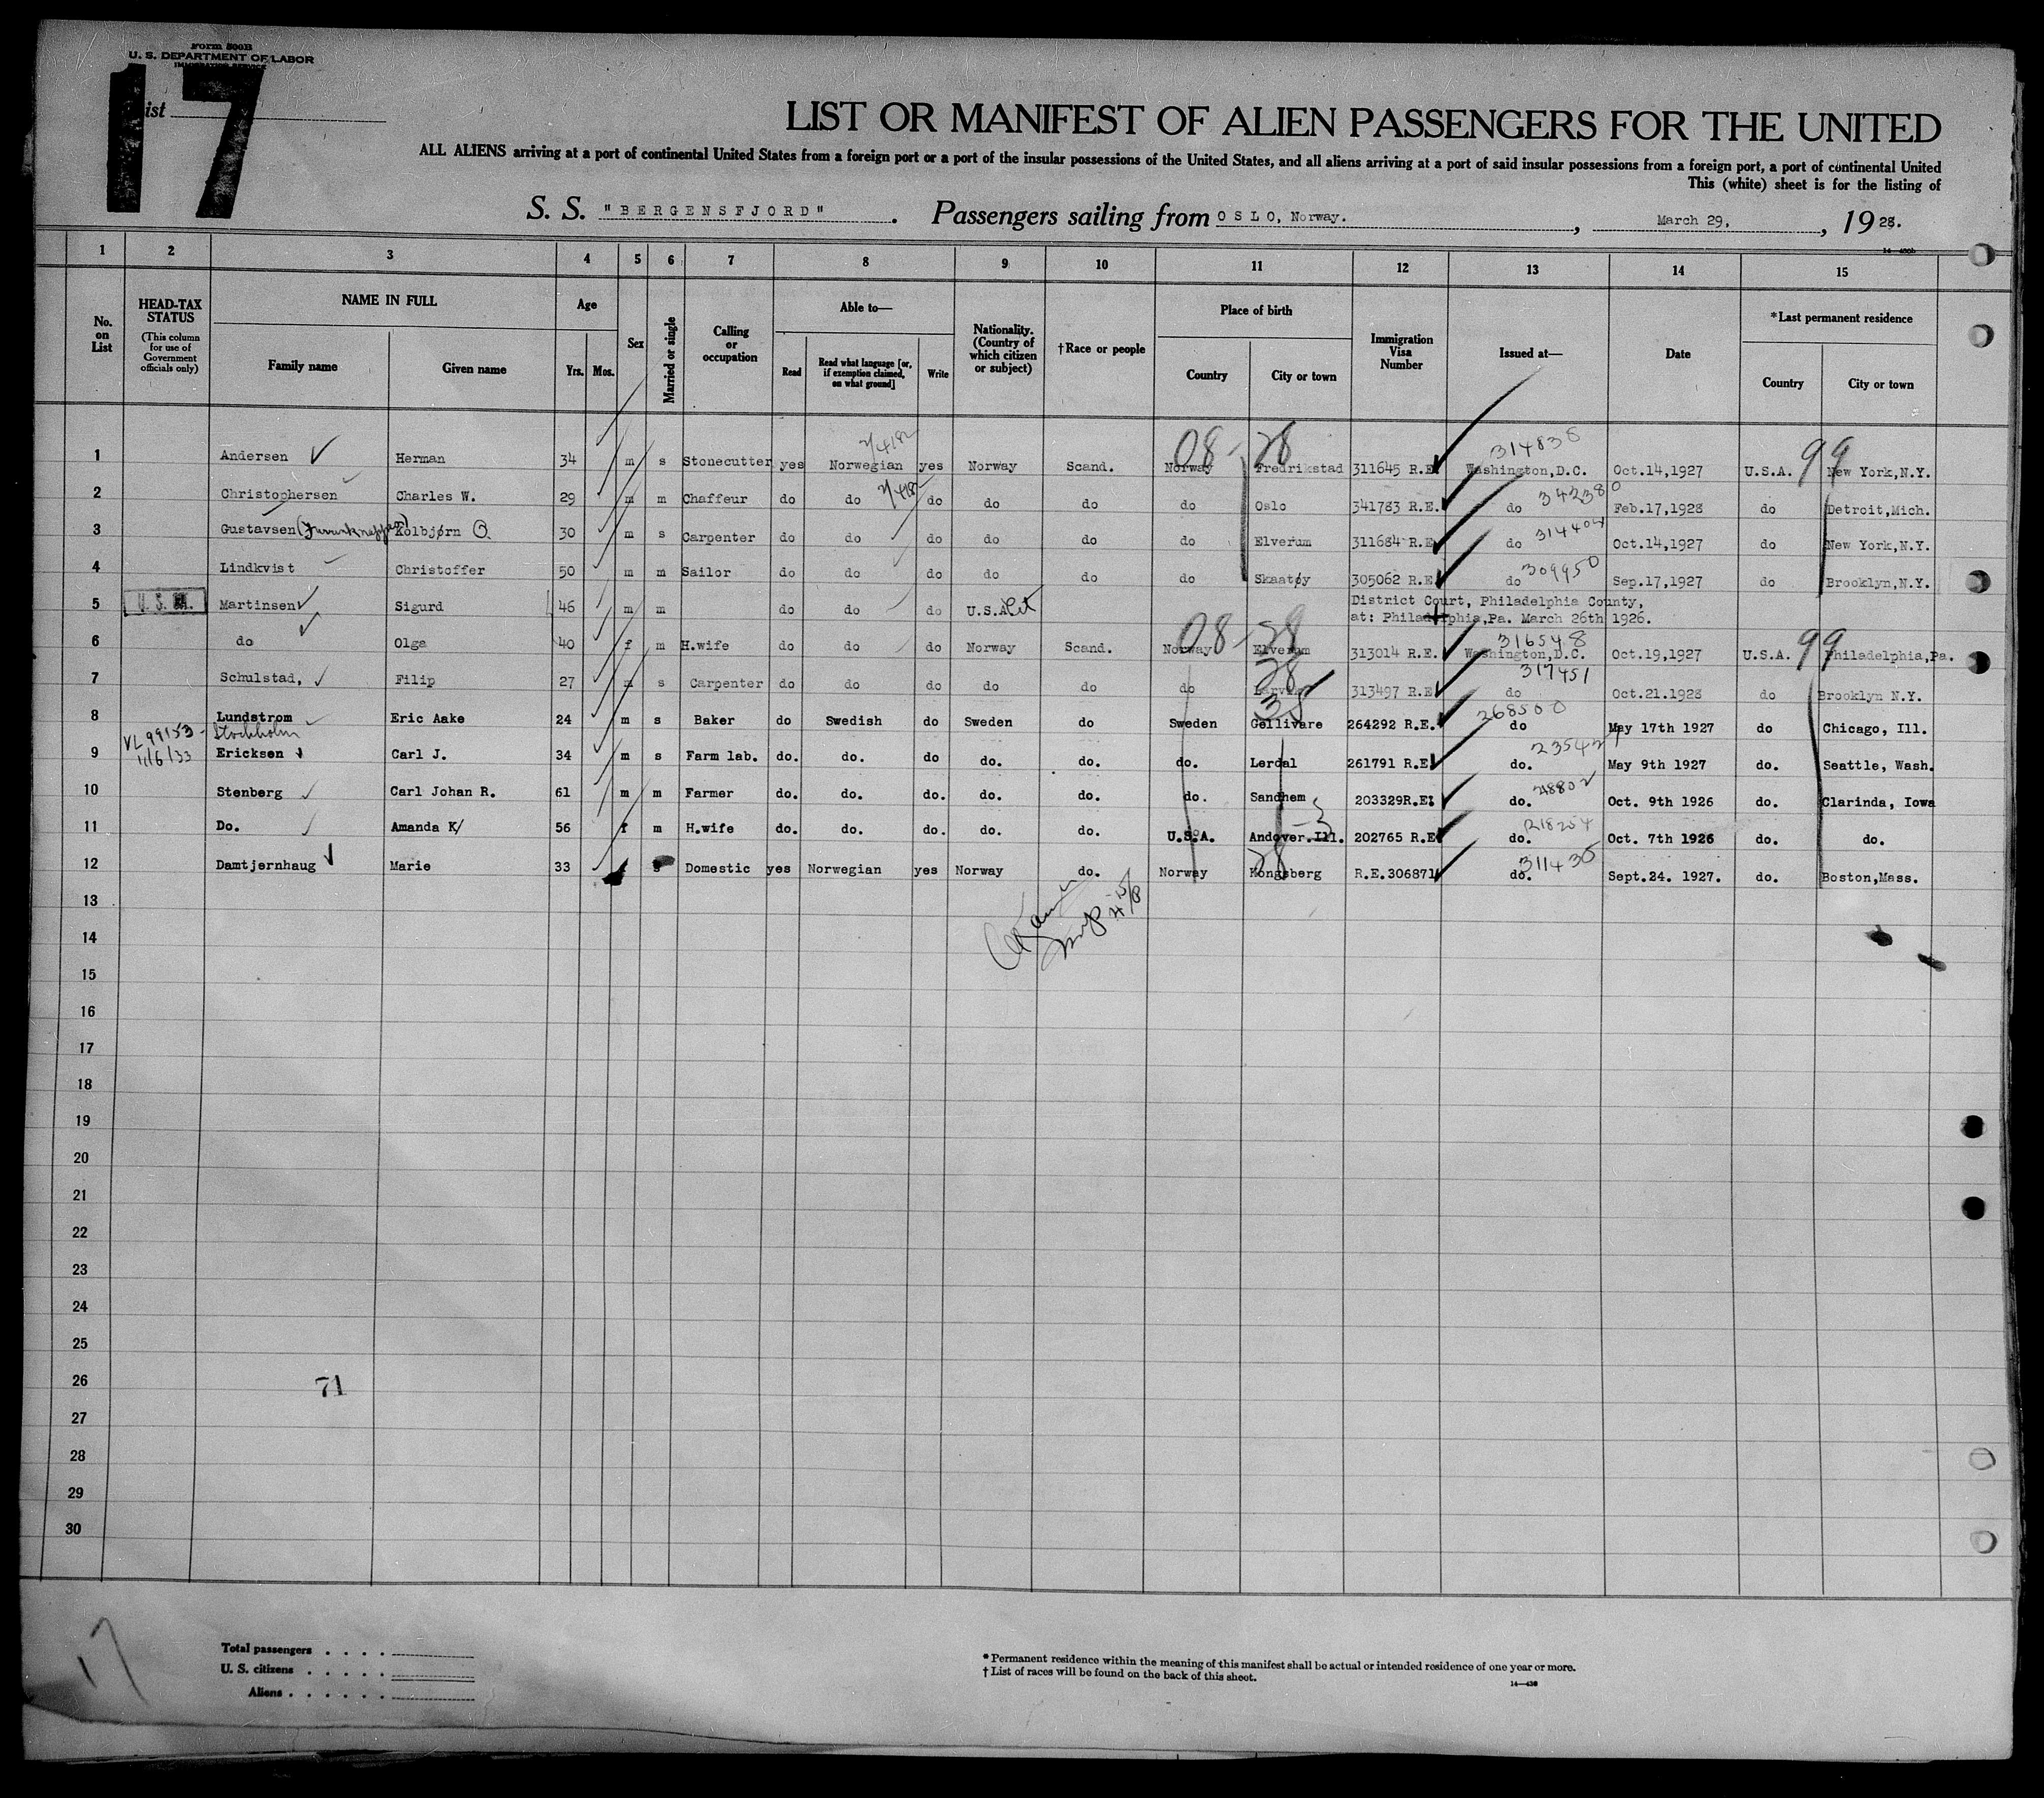 Form 500B
U. S. DEPARTMENT OF LABOR
IMMIGRATION SERVICE
List 17
LIST OR MANIFEST OF ALIEN PASSENGERS FOR THE UNITED
ALL ALIENS arriving at a port of continental United States from a foreign port or a port of the insular possessions of the United States, and all aliens arriving at a port of said insular possessions from a foreign port, a port of continental United
This (white) sheet is for the listing of
S. S. "BERGENSFJORD". Passengers sailing from OSLO, Norway., March 29, , 1928.
1 2 3 4 5 6 7 8 9 10 11 12 13 14 15
No. on List
HEAD-TAX STATUS
(This column for use of Government officials only)
NAME IN FULL
Family name Given name
Age
Yrs. Mos.
Sex
Married or single
Calling or occupation
Able to—
Read Read what language [or, if exemption claimed, on what ground] Write
Nationality. (Country of which citizen or subject)
†Race or people
Place of birth
Country City or town
Immigration Visa Number
Issued at—
Date
*Last permanent residence
Country City or town
08-28 314838 99
1 Andersen Herman 34 m s Stonecutter yes Norwegian yes Norway Scand. Norway Fredrikstad 311645 R.E. Washington,D.C. Oct.14,1927 U.S.A. New York,N.Y.
2 Christophersen Charles W. 29 m m Chaffeur do do do do do do Oslo 341783 R.E. do 342380 Feb.17,1928 do Detroit,Mich.
3 Gustavsen Kolbjørn O. 30 m s Carpenter do do do do do do Elverum 311684 R.E. do 314404 Oct.14,1927 do New York,N.Y.
4 Lindkvist Christoffer 50 m m Sailor do do do do do do Skaatøy 305062 R.E. do 309950 Sep.17,1927 do Brooklyn,N.Y.
5 U. S. Martinsen Sigurd 46 m m do do do U.S.A. District Court, Philadelphia County,
at: Philadelphia,Pa. March 26th 1926.
08-28 316548 99
6 do Olga 40 f m H.wife do do do Norway Scand. Norway Elverum 313014 R.E. Washington,D.C. Oct.19,1927 U.S.A. Philadelphia,Pa.
28 317451
7 Schulstad, Filip 27 m s Carpenter do do do do do do Larvik 313497 R.E. do Oct.21.1928 do Brooklyn N.Y.
35 268500
8 Lundstrom Eric Aake 24 m s Baker do Swedish do Sweden do Sweden Gellivare 264292 R.E. do May 17th 1927 do Chicago, Ill.
VL 99153 - Stockholm
1/6/33
9 Ericksen Carl J. 34 m s Farm lab. do. do. do do. do. do. Lerdal 261791 R.E. do. May 9th 1927 do. Seattle, Wash.
10 Stenberg Carl Johan R. 61 m m Farmer do. do. do. do. do. do. Sandhem 203329R.E. do. Oct. 9th 1926 do. Clarinda, Iowa
11 Do. Amanda K/ 56 f m H.wife do. do. do. do. do. U.S.A. Andover.Ill. 202765 R.E. do. 218254 Oct. 7th 1926 do. do.
28 311435
12 Damtjernhaug Marie 33 f s Domestic yes Norwegian yes Norway do. Norway Kongsberg R.E.306871 do. Sept.24. 1927. do. Boston,Mass.
13
14
15
16
17
18
19
20
21
22
23
24
25
26 71
27
28
29
30
17
Total passengers
U. S. citizens
Aliens
* Permanent residence within the meaning of this manifest shall be actual or intended residence of one year or more.
† List of races will be found on the back of this sheet.